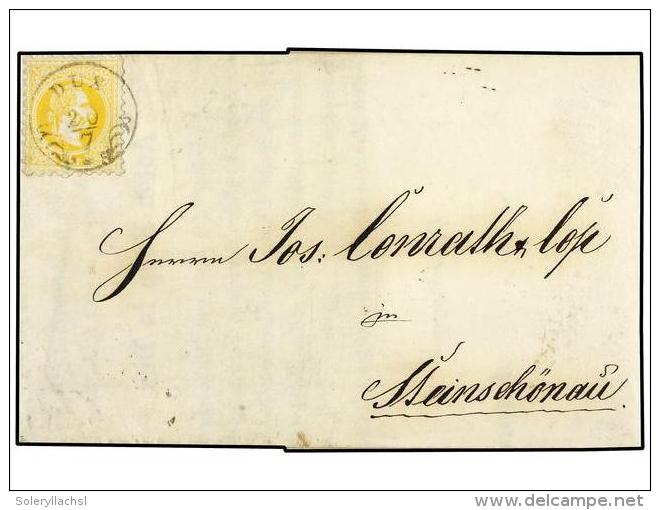 DUX
20
7
Herrn Jos: Conrath & Cos
in
Steinschönau.
Soleryllachsl
delcampe.net